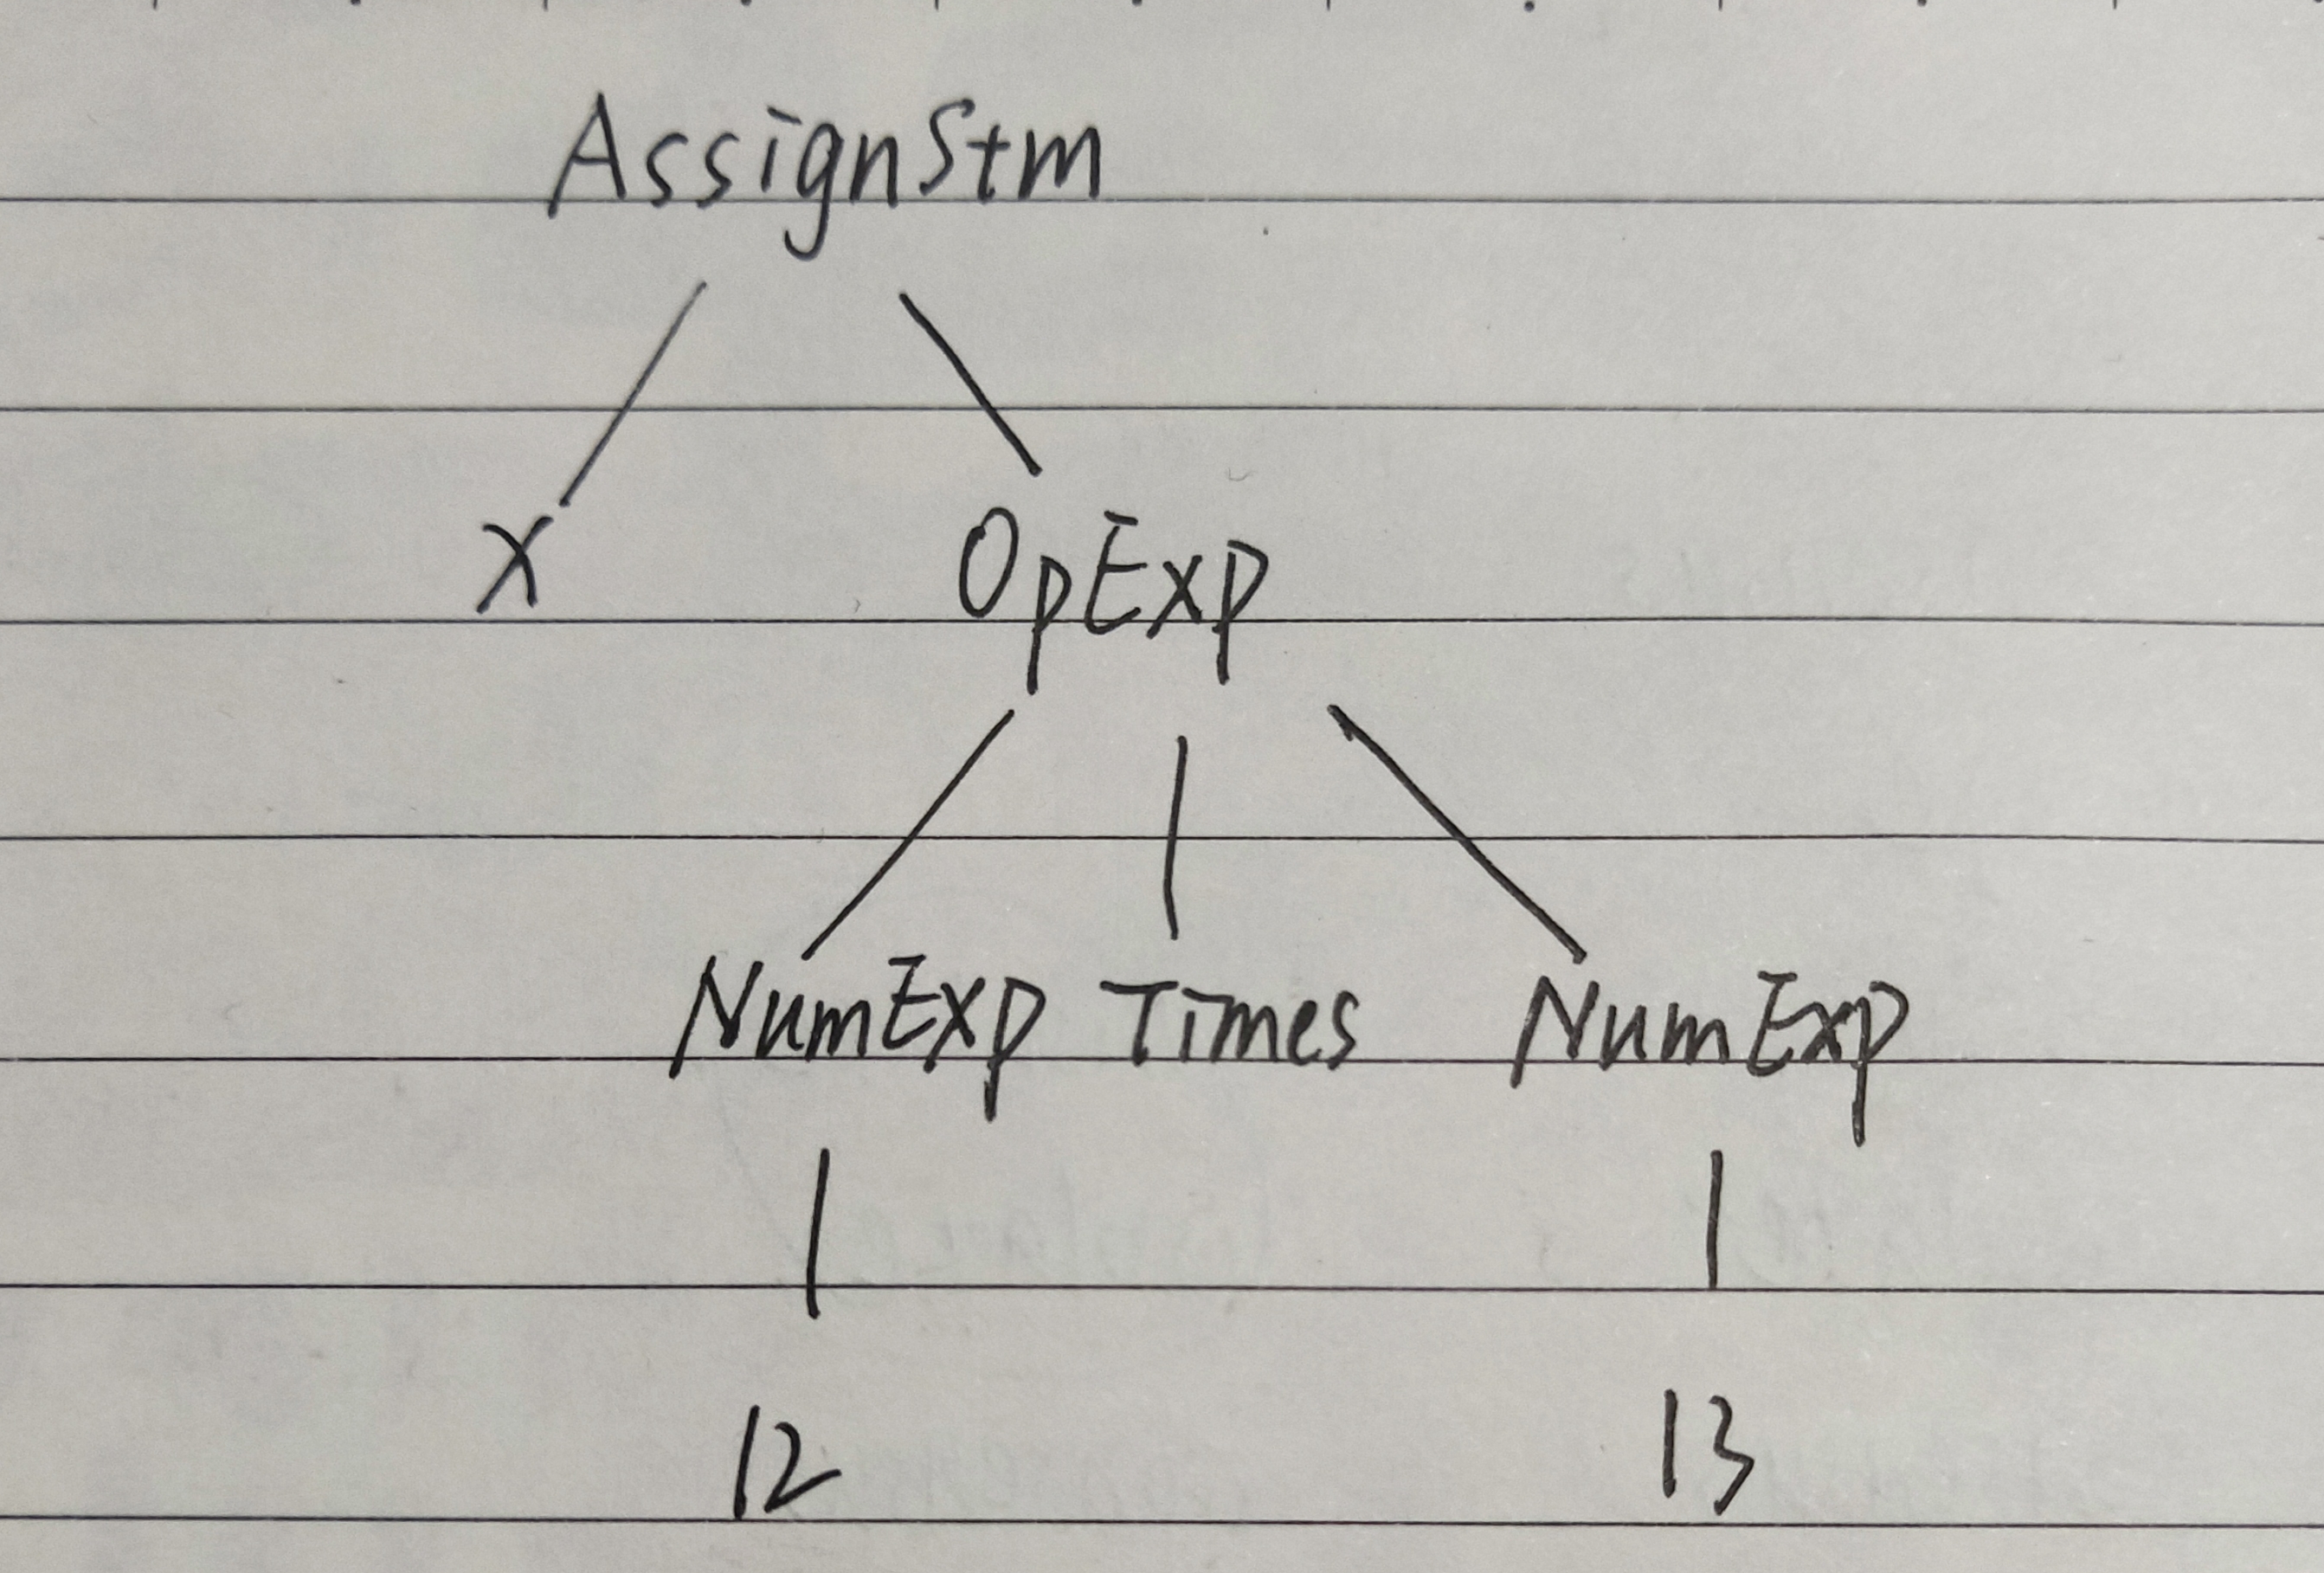 AssignStm
x OpExp
NumExp Times NumExp
12 13